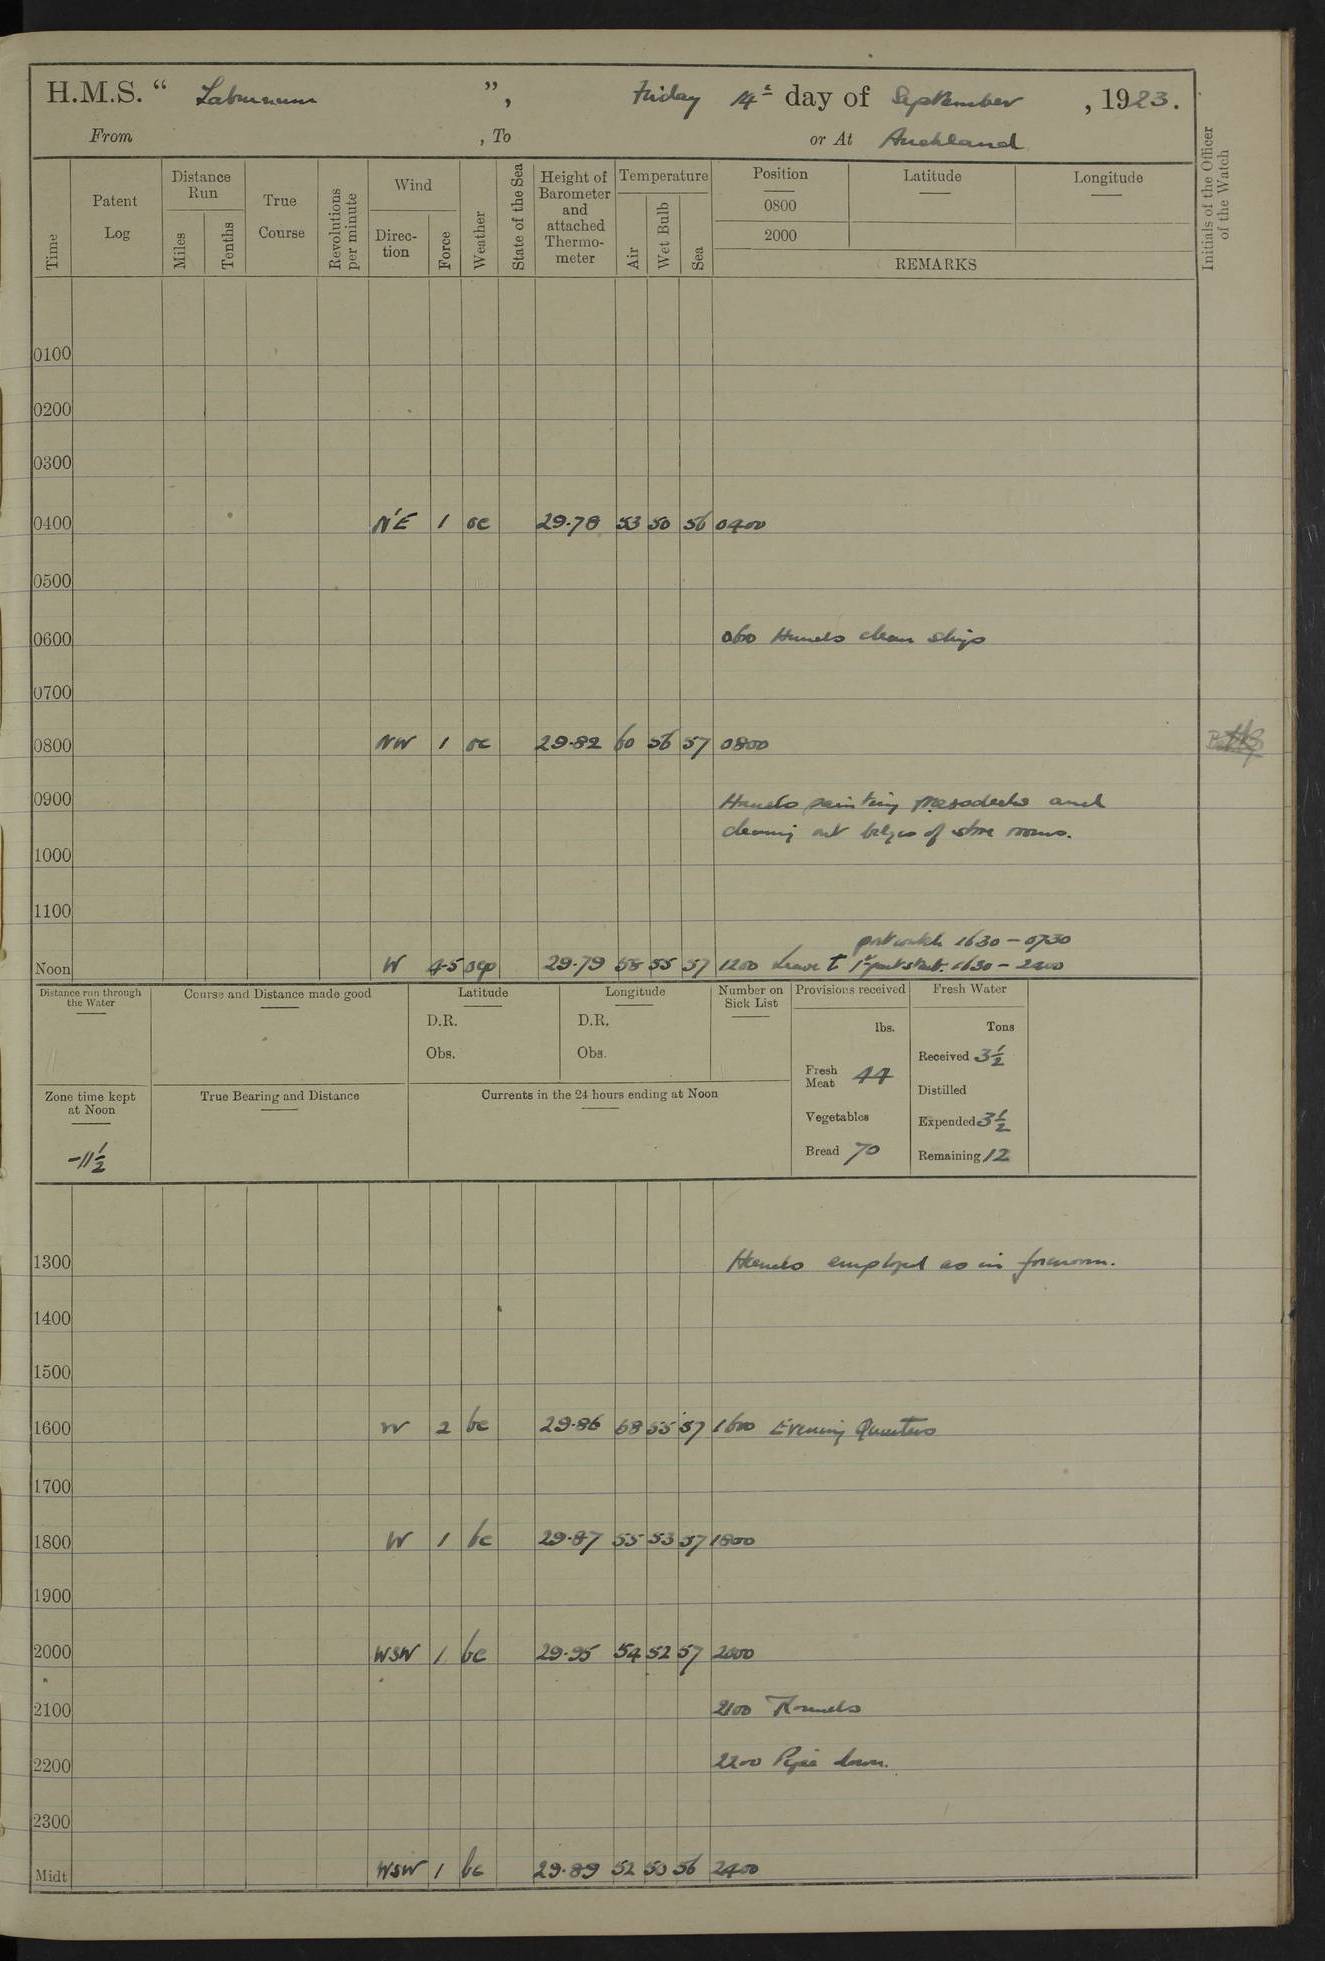 H.M.S. “ Laburnum ”, Friday 14th day of September, 1923.
From , To or At Auckland
Time
Patent Log
Distance Run
Miles
Tenths
True Course
Revolutions per minute
Wind
Direction
Force
Weather
State of the Sea
Height of Barometer and attached Thermometer
Temperature
Air
Wet Bulb
Sea
Position
0800
2000
Latitude
Longitude
REMARKS
Initials of the Officer of the Watch
0100
0200
0300
0400 N'E 1 oc 29.78 53 50 56 0400
0500
0600 0600 Hands clean ship
0700
0800 NW 1 oc 29.82 60 56 57 0800
0900 Hands painting messdecks and
cleaning out bilges of store rooms.
1000
1100
port watch 1630 – 0730
Noon W 4-5 ocp 29.79 58 55 57 1200 Leave to 1st part starb. 1630 – 2400
Distance run through the Water
Course and Distance made good
Latitude
D.R.
Obs.
Longitude
D.R.
Obs.
Number on Sick List
Provisions received
lbs.
Fresh Meat 44
Vegetables
Bread 70
Fresh Water
Tons
Received 3½
Distilled
Expended 3½
Remaining 12
Zone time kept at Noon
-11½
True Bearing and Distance
Currents in the 24 hours ending at Noon
1300 Hands employed as in forenoon.
1400
1500
1600 W 2 bc 29.86 68 55 57 1600 Evening Quarters
1700
1800 W 1 bc 29.87 55 53 57 1800
1900
2000 WSW 1 bc 29.95 54 52 57 2000
2100 2100 Rounds
2200 2200 Pipe down.
2300
Midt WSW 1 bc 29.89 52 50 56 2400